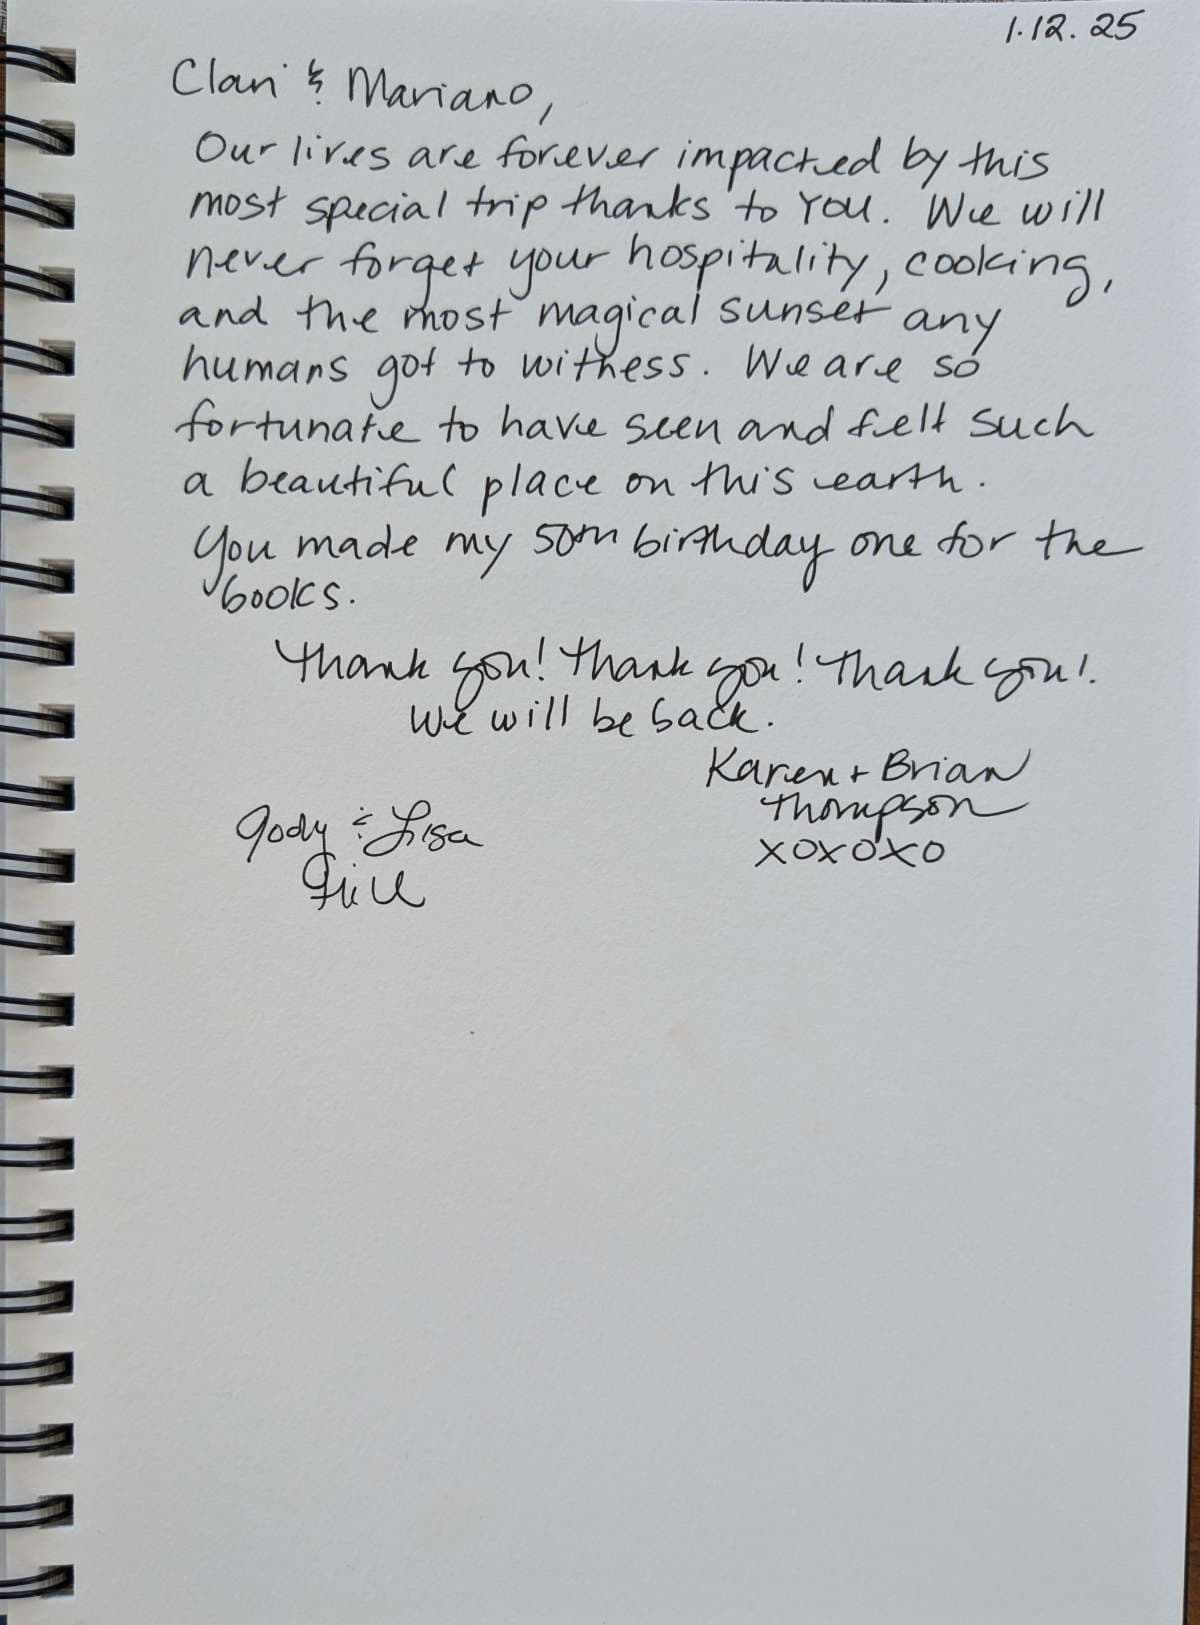 1.12.25
Clari & Mariano,
Our lives are forever impacted by this
most special trip thanks to YOU. We will
never forget your hospitality, cooking,
and the most magical sunset any
humans got to witness. We are so
fortunate to have seen and felt such
a beautiful place on this earth.
You made my 50th birthday one for the
books.
Thank you! Thank you! Thank you!
We will be back.
Karen + Brian
Thompson
XOXOXO
Jody & Lisa